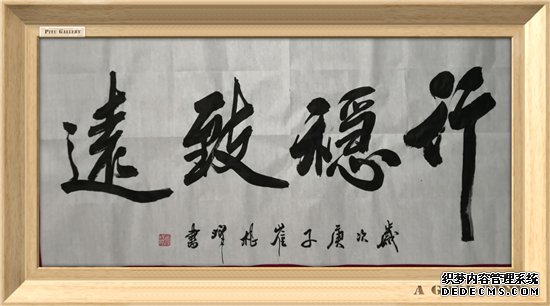 PITU GALLERY
行穩致遠
歲次庚子崔書
A G
织梦内容管理系统
DEDECMS.COM